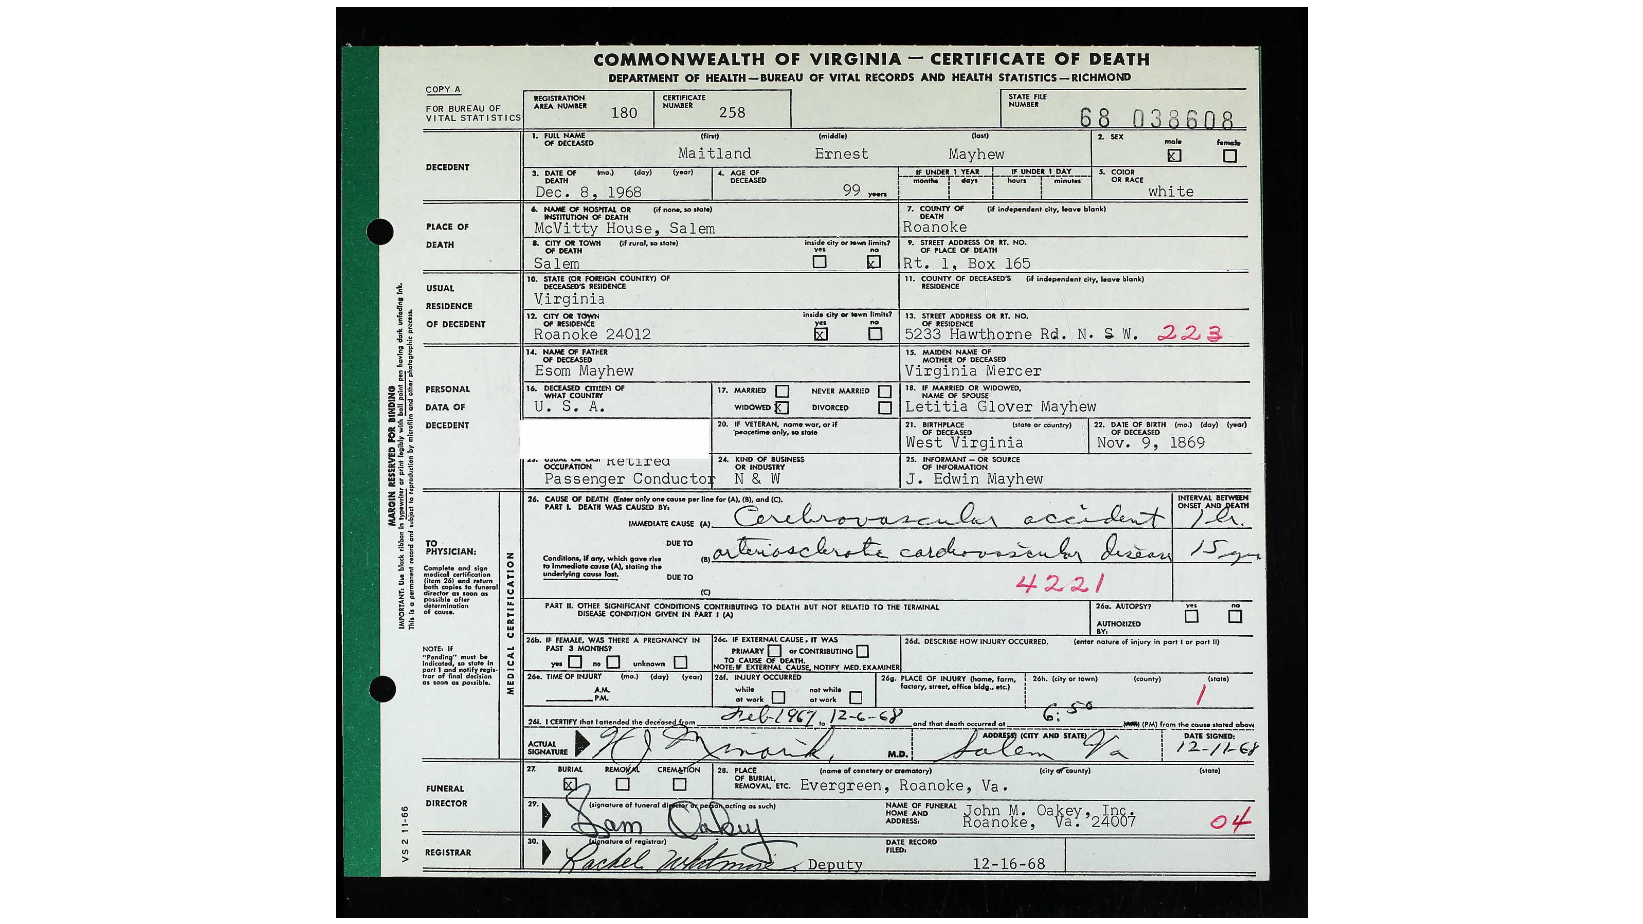 COMMONWEALTH OF VIRGINIA — CERTIFICATE OF DEATH
DEPARTMENT OF HEALTH—BUREAU OF VITAL RECORDS AND HEALTH STATISTICS—RICHMOND
COPY A
FOR BUREAU OF VITAL STATISTICS
REGISTRATION AREA NUMBER 180
CERTIFICATE NUMBER 258
STATE FILE NUMBER 68 038608
DECEDENT
1. FULL NAME OF DECEASED (first) (middle) (last)
Maitland Ernest Mayhew
2. SEX male x female
3. DATE OF DEATH (mo.) (day) (year)
Dec. 8, 1968
4. AGE OF DECEASED 99 years
IF UNDER 1 YEAR months days
IF UNDER 1 DAY hours minutes
5. COLOR OR RACE white
PLACE OF DEATH
6. NAME OF HOSPITAL OR INSTITUTION OF DEATH (if none, so state)
McVitty House, Salem
7. COUNTY OF DEATH (if independent city, leave blank)
Roanoke
8. CITY OR TOWN OF DEATH (if rural, so state)
Salem
inside city or town limits? yes no x
9. STREET ADDRESS OR RT. NO. OF PLACE OF DEATH
Rt. 1, Box 165
USUAL RESIDENCE OF DECEDENT
10. STATE (OR FOREIGN COUNTRY) OF DECEASED'S RESIDENCE
Virginia
11. COUNTY OF DECEASED'S RESIDENCE (if independent city, leave blank)
12. CITY OR TOWN OF RESIDENCE
Roanoke 24012
inside city or town limits? yes x no
13. STREET ADDRESS OR RT. NO. OF RESIDENCE
5233 Hawthorne Rd. N. W. 223
PERSONAL DATA OF DECEDENT
14. NAME OF FATHER OF DECEASED
Esom Mayhew
15. MAIDEN NAME OF MOTHER OF DECEASED
Virginia Mercer
16. DECEASED CITIZEN OF WHAT COUNTRY
U. S. A.
17. MARRIED NEVER MARRIED
WIDOWED x DIVORCED
18. IF MARRIED OR WIDOWED, NAME OF SPOUSE
Letitia Glover Mayhew
20. IF VETERAN, name war, or if peacetime only, so state
21. BIRTHPLACE OF DECEASED (state or country)
West Virginia
22. DATE OF BIRTH OF DECEASED (mo.) (day) (year)
Nov. 9, 1869
23. USUAL OR LAST OCCUPATION Retired
Passenger Conductor
24. KIND OF BUSINESS OR INDUSTRY
N & W
25. INFORMANT — OR SOURCE OF INFORMATION
J. Edwin Mayhew
MARGIN RESERVED FOR BINDING
IMPORTANT: Use black ribbon in typewriter or print legibly with ball point pen having dark unfading ink.
This is a permanent record and subject to reproduction by microfilm and other photographic process.
TO PHYSICIAN:
Complete and sign medical certification (item 26) and return both copies to funeral director as soon as possible after determination of cause.
NOTE: If "Pending" must be indicated, so state in part I and notify registrar of final decision as soon as possible.
MEDICAL CERTIFICATION
26. CAUSE OF DEATH (Enter only one cause per line for (A), (B), and (C).
PART I. DEATH WAS CAUSED BY:
INTERVAL BETWEEN ONSET AND DEATH
IMMEDIATE CAUSE (A) Cerebrovascular accident 1 hr.
DUE TO
Conditions, if any, which gave rise to immediate cause (A), stating the underlying cause last.
(B) arteriosclerotic cardiovascular disease 15 yrs
DUE TO
(C)
4221
PART II. OTHER SIGNIFICANT CONDITIONS CONTRIBUTING TO DEATH BUT NOT RELATED TO THE TERMINAL DISEASE CONDITION GIVEN IN PART I (A)
26a. AUTOPSY? yes no
AUTHORIZED BY:
26b. IF FEMALE, WAS THERE A PREGNANCY IN PAST 3 MONTHS?
yes no unknown
26c. IF EXTERNAL CAUSE, IT WAS
PRIMARY or CONTRIBUTING
TO CAUSE OF DEATH.
NOTE: IF EXTERNAL CAUSE, NOTIFY MED. EXAMINER
26d. DESCRIBE HOW INJURY OCCURRED. (enter nature of injury in part I or part II)
26e. TIME OF INJURY (mo.) (day) (year)
A.M.
P.M.
26f. INJURY OCCURRED
while at work not while at work
26g. PLACE OF INJURY (home, farm, factory, street, office bldg., etc.)
26h. (city or town) (county) (state)
1
26i. I CERTIFY that I attended the deceased from Feb-1967 to 12-6-68 and that death occurred at 6:50 (PM) from the cause stated above
ACTUAL SIGNATURE M.D.
ADDRESS (CITY AND STATE) Salem Va
DATE SIGNED: 12-11-68
FUNERAL DIRECTOR
27. BURIAL x REMOVAL CREMATION
28. PLACE OF BURIAL, REMOVAL, ETC. (name of cemetery or crematory) (city or county) (state)
Evergreen, Roanoke, Va.
29. (signature of funeral director or person acting as such)
Sam Oakey
NAME OF FUNERAL HOME AND ADDRESS:
John M. Oakey, Inc.
Roanoke, Va. 24007
04
REGISTRAR
30. (signature of registrar)
Rachel Whitmore, Deputy
DATE RECORD FILED: 12-16-68
VS 2 11-66